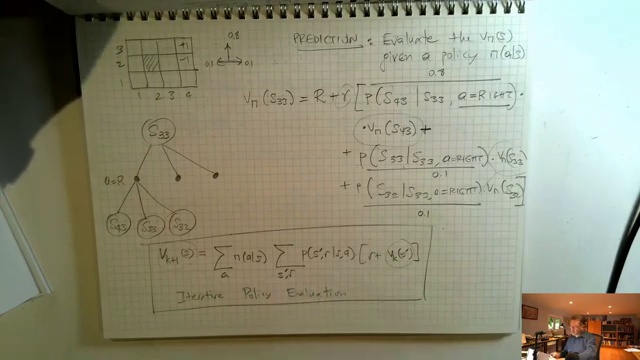 PREDICTION : Evaluate the Vπ(s)
given a policy π(a|s)
3 +1
2 -1
1
1 2 3 4
0.8
0.1 0.1
0.8
Vπ(S33) = R + γ [ p(S43 | S33, a=RIGHT) ·
· Vπ(S43) +
+ p(S33 | S33, a=RIGHT) · Vπ(S33)
0.1
+ p(S32 | S33, a=RIGHT) Vπ(S32) ]
0.1
S33
a=R
S43 S33 S32
Vk+1(s) = ∑a π(a|s) ∑s',r p(s',r|s,a) [ r + Vk(s') ]
Iterative Policy Evaluation